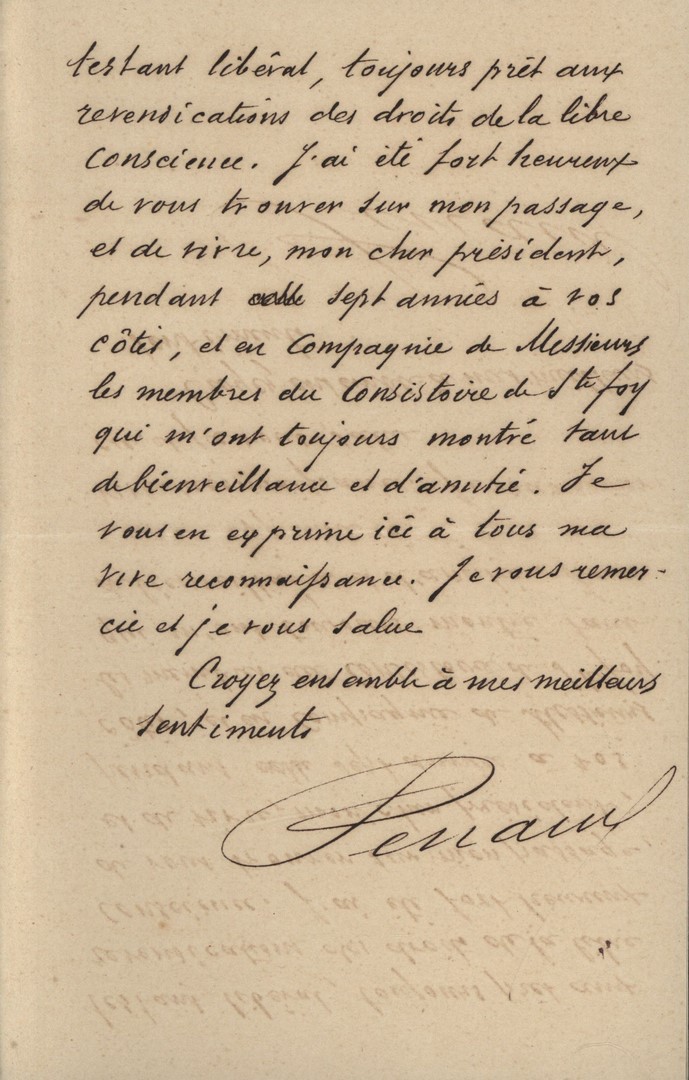 testant libéral, toujours prêt aux
revendications des droits de la libre
Conscience. J'ai été fort heureux
de vous trouver sur mon passage,
et de vivre, mon cher président,
pendant sept années à vos
côtés, et en Compagnie de Messieurs
les membres du Consistoire de Ste foy
qui m'ont toujours montré tant
de bienveillance et d'amitié. Je
vous en exprime ici à tous ma
vive reconnaissance. Je vous remer-
cie et je vous salue
Croyez ensemble à mes meilleurs
sentiments